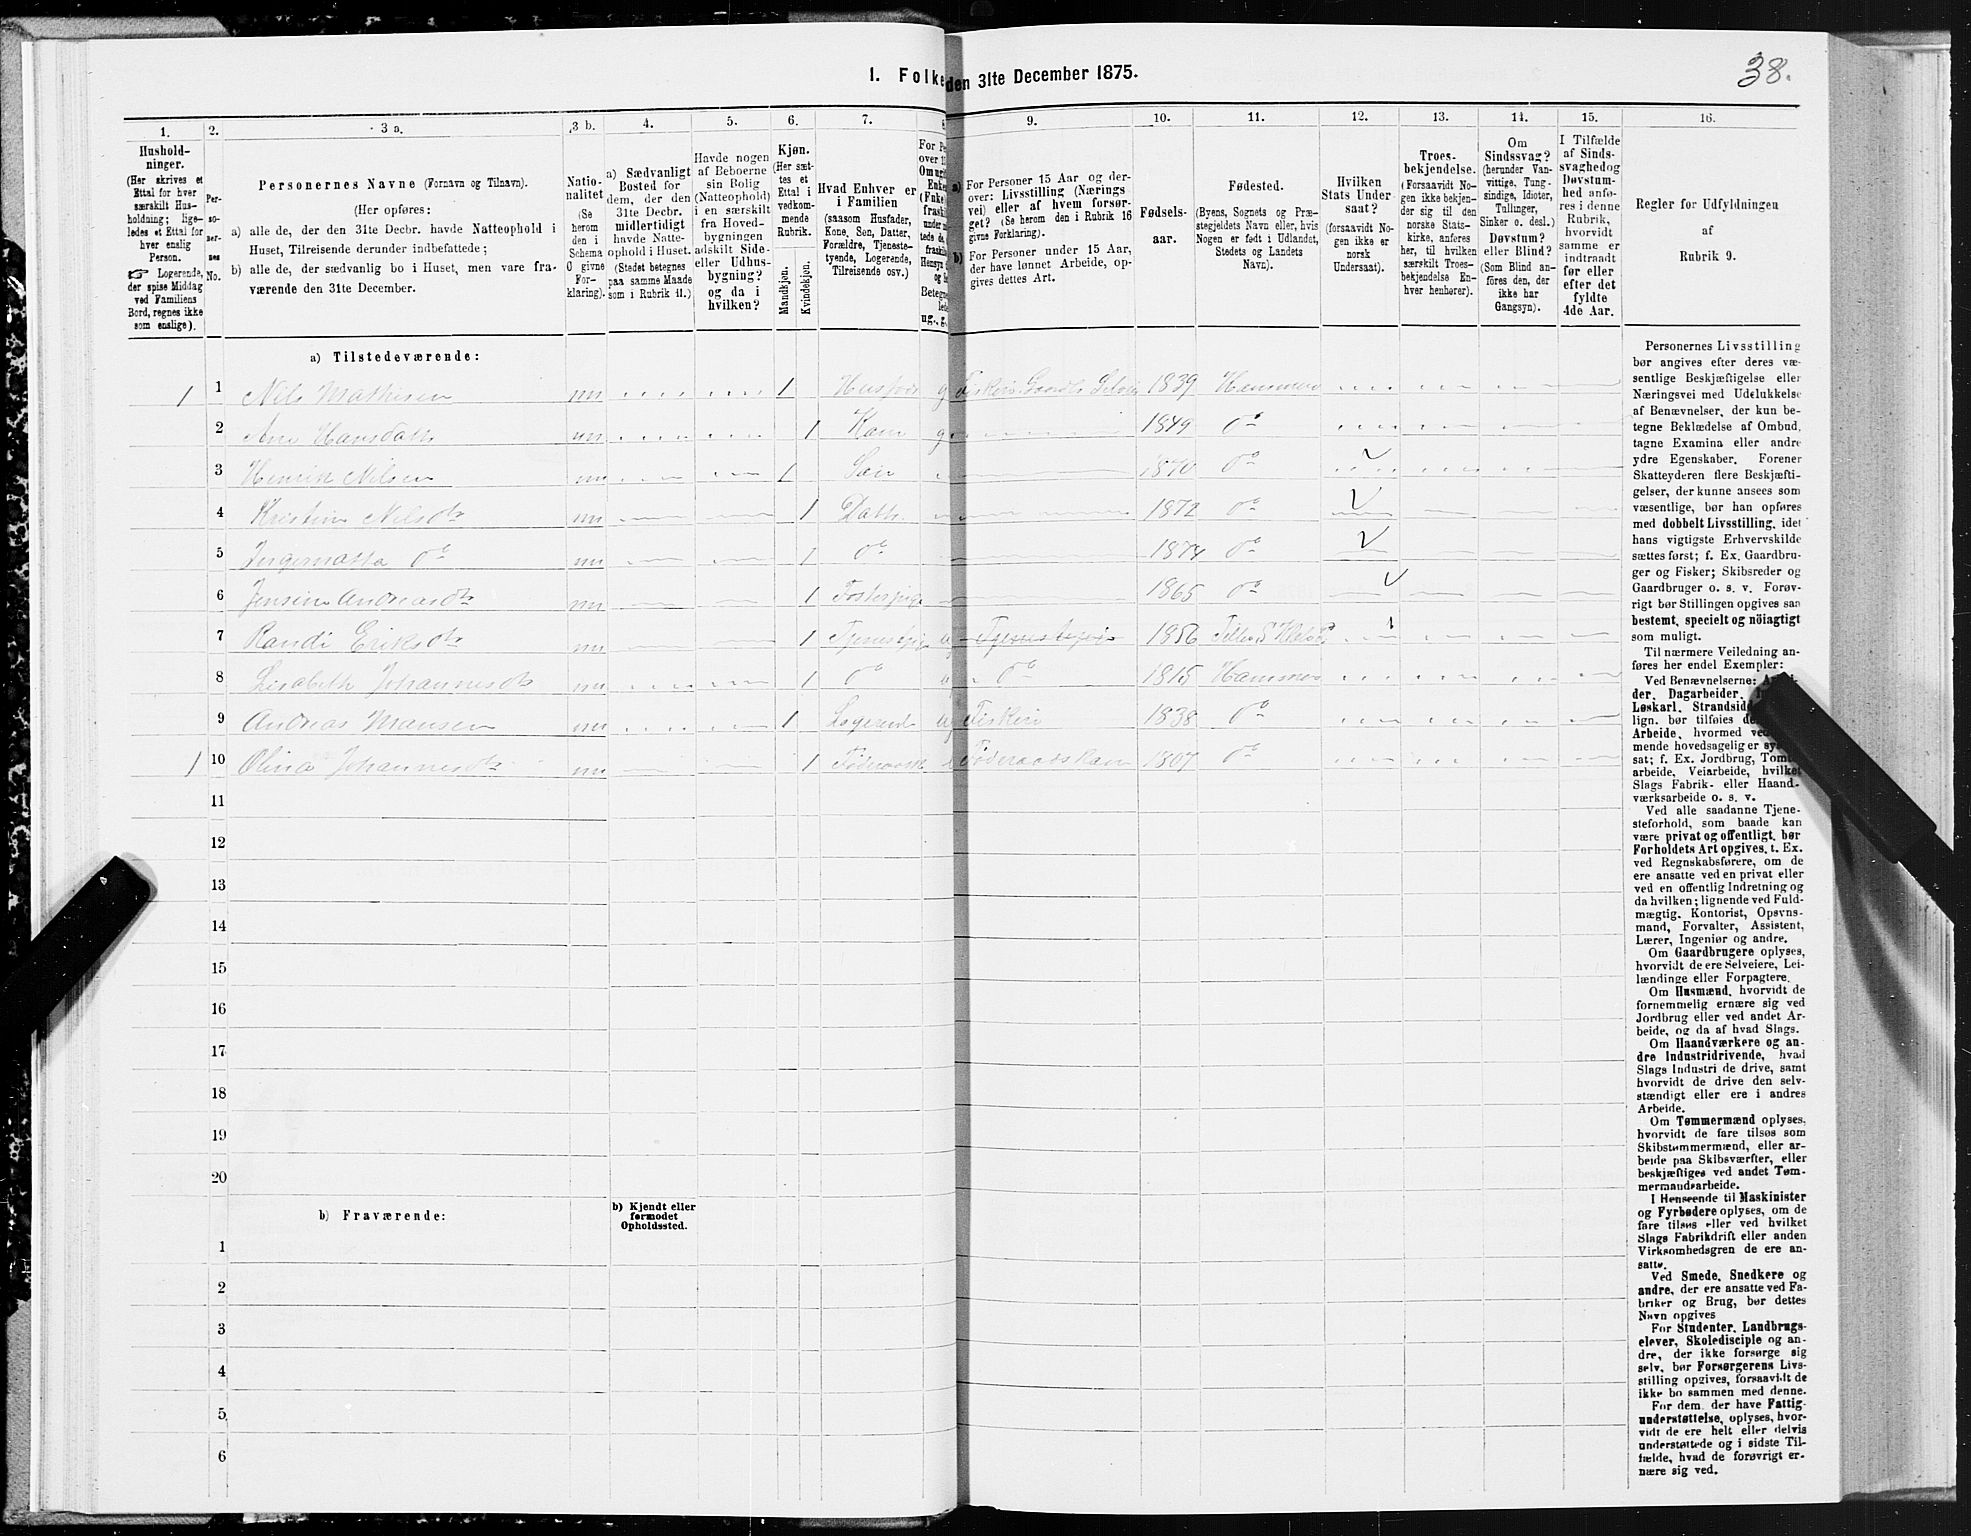 38.
1. Folke den 31te December 1875.
1. 2. 3 a. 3 b. 4. 5. 6. 7. 8 9. 10. 11. 12. 13. 14. 15. 16.
Hushold-
ninger.
(Her skrives et
Ettal for hver
særskilt Hus-
holdning; lige-
ledes et Ettal for
hver enslig
Person.
☞ Logerende,
der spise Middag
ved Familiens
Bord, regnes ikke
som enslige).
Per-
so-
ner-
nes
No.
Personernes Navne (Fornavn og Tilnavn).
(Her opføres:
a) alle de, der den 31te Decbr. havde Natteophold i
Huset, Tilreisende derunder indbefattede;
b) alle de, der sædvanlig bo i Huset, men vare fra-
værende den 31te December.
Natio-
nalitet
(Se
herom
den i
Schema
O givne
For-
klaring).
a) Sædvanligt
Bosted for
dem, der den
31te Decbr.
midlertidigt
havde Natte-
ophold i Huset.
(Stedet betegnes
paa samme Maade
som i Rubrik 11.)
Havde nogen
af Beboerne
sin Bolig
(Natteophold)
i en særskilt
fra Hoved-
bygningen
adskilt Side-
eller Udhus-
bygning?
og da i
hvilken?
Kjøn.
(Her sæt-
tes et
Ettal i
vedkom-
mende
Rubrik.
Mandkjøn.
Kvindekjøn.
Hvad Enhver er
i Familien
(saasom Husfader,
Kone, Søn, Datter,
Forældre, Tjeneste-
tyende, Logerende,
Tilreisende osv.)
For Pe
over 1
Om ugi
Enke
(Enke
fraskil
under n
tede de,
fraskiln
Hensyn
og Se
Betegne
lede
ug., g.,
a) For Personer 15 Aar og der-
over: Livsstilling (Nærings
vei) eller af hvem forsør-
get? (Se herom den i Rubrik 16
givne Forklaring).
b) For Personer under 15 Aar,
der have lønnet Arbeide, op-
gives dettes Art.
Fødsels-
aar.
Fødested.
(Byens, Sognets og Præ-
stegjeldets Navn eller, hvis
Nogen er født i Udlandet,
Stedets og Landets
Navn).
Hvilken
Stats Under-
saat?
(forsaavidt No-
gen ikke er
norsk
Undersaat).
Troes-
bekjendelse.
(Forsaavidt No-
gen ikke bekjen-
der sig til den
norske Stats-
kirke, anføres
her, til hvilken
særskilt Troes-
bekjendelse En-
hver henhører).
Om
Sindssvag?
(herunder Van-
vittige, Tung-
sindige, Idioter,
Tullinger,
Sinker o. desl.)
Døvstum?
eller Blind?
(Som Blind an-
føres den, der
ikke har
Gangsyn).
I Tilfælde
af Sinds-
svaghed og
Døvstum-
hed anfø-
res i denne
Rubrik,
hvorvidt
samme er
indtraadt
før eller
efter det
fyldte
4de Aar.
Regler for Udfyldningen
af
Rubrik 9.
a) Tilstedeværende:
1 1 Nils Mathisen nn 1 g Fiskeri Gaardb Selvei 1839 Hammerø
2 Ane Hansdatr nn 1 Kone g 1849 do
3 Henrik Nilsen nn 1 Søn 1870 do
4 Kristine Nilsdtr nn 1 Datr 1872 do
5 do nn 1 do 1874 do
6 Jensine Andreasdtr nn 1 Fosterpige 1865 do
7 Randi Eriksdtr nn 1 Tjenestepige ug Tjenestepige 1856
8 Lisabeth Johannesdtr nn 1 do do 1815 Hammerø
9 Andreas nn 1 Logerende ug Fiskeri 1838 do
1 10 Olina Johannesdtr nn 1 Føderaadskone 1807 do
11
12
13
14
15
16
17
18
19
20
b) Fraværende:
b) Kjendt eller
formodet
Opholdssted.
1
2
3
4
5
6
Personernes Livsstilling
bør angives efter deres væ-
sentlige Beskjæftigelse eller
Næringsvei med Udelukkelse
af Benævnelser, der kun be-
tegne Beklædelse af Ombud,
tagne Examina eller andre
ydre Egenskaber. Forener
Skatteyderen flere Beskjæfti-
gelser, der kunne ansees som
væsentlige, bør han opføres
med dobbelt Livsstilling, idet
hans vigtigste Erhvervskilde
sættes først; f. Ex. Gaardbru-
ger og Fisker; Skibsreder og
Gaardbruger o. s. v. Forøv-
rigt bør Stillingen opgives saa
bestemt, specielt og nöiagtigt
som muligt.
Til nærmere Veiledning an-
føres her endel Exempler:
Ved Benævnelserne:
der, Dagarbeider,
Løskarl, Strandsid
lign. bør tilføies de
Arbeide, hvormed ved
mende hovedsagelig er sy
sat; f. Ex. Jordbrug, Tomt
arbeide, Veiarbeide, hvilket
Slags Fabrik- eller Haand-
værksarbeide o. s. v.
Ved alle saadanne Tjene-
steforhold, som baade kan
være privat og offentligt, bør
Forholdets Art opgives, t. Ex.
ved Regnskabsførere, om de
ere ansatte ved en privat eller
ved en offentlig Indretning og
da hvilken; lignende ved Fuld-
mægtig, Kontorist, Opsyns-
mand, Forvalter, Assistent,
Lærer, Ingeniør og andre.
Om Gaardbrugere oplyses,
hvorvidt de ere Selveiere, Lei-
lændinge eller Forpagtere.
Om Husmænd, hvorvidt de
fornemmelig ernære sig ved
Jordbrug eller ved andet Ar-
beide, og da af hvad Slags.
Om Haandværkere og an-
dre Industridrivende, hvad
Slags Industri de drive, samt
hvorvidt de drive den selv-
stændigt eller ere i andres
Arbeide.
Om Tømmermænd oplyses,
hvorvidt de fare tilsøs som
Skibstømmermænd, eller ar-
beide paa Skibsværfter, eller
beskjæftiges ved andet Tøm-
mermandsarbeide.
I Henseende til Maskinister
og Fyrbødere oplyses, om de
fare tilsøs eller ved hvilket
Slags Fabrikdrift eller anden
Virksomhedsgren de ere an-
satte.
Ved Smede, Snedkere og
andre, der ere ansatte ved Fa-
briker og Brug, bør dettes
Navn opgives
For Studenter, Landbrugs-
elever, Skoledisciple og an-
dre, der ikke forsørge sig
selv, bør Forsørgerens Livs-
stilling opgives, forsaavidt de
ikke bo sammen med denne.
For dem, der have Fattig-
understøttelse, oplyses, hvor-
vidt de ere helt eller delvis
understøttede og i sidste Til-
fælde, hvad de forøvrigt er-
nære sig ved.